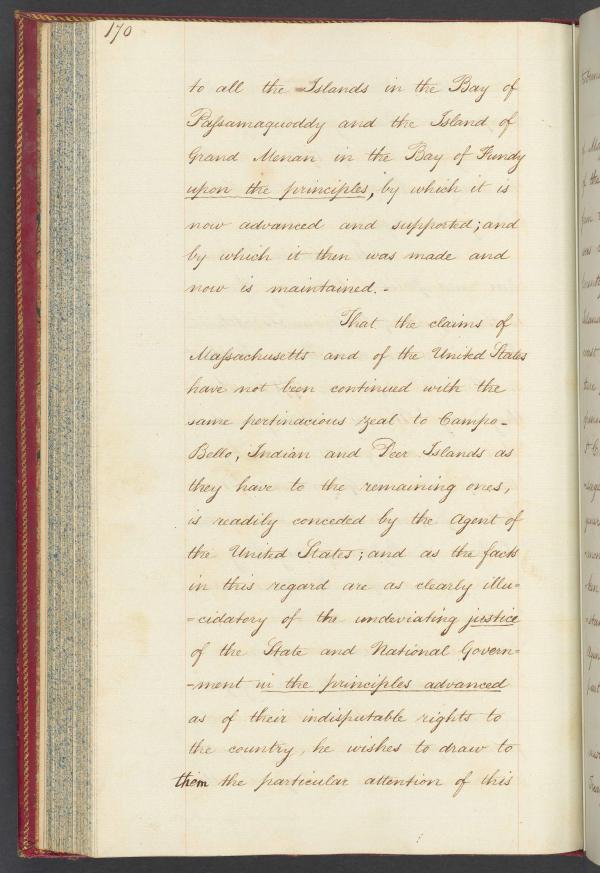 170
to all the Islands in the Bay of
Passamaquoddy and the Island of
Grand Menan in the Bay of Fundy
upon the principles, by which it is
now advanced and supported; and
by which it then was made and
now is maintained.-
That the claims of
Massachusetts and of the United States
have not been continued with the
same pertinacious zeal to Campo-
Bello, Indian and Deer Islands as
they have to the remaining ones,
is readily conceded by the Agent of
the United States; and as the facts
in this regard are as clearly illu=
=cidatory of the undeviating justice
of the State and National Govern=
-ment in the principles advanced
as of their indisputable rights to
the country, he wishes to draw to
them the particular attention of this